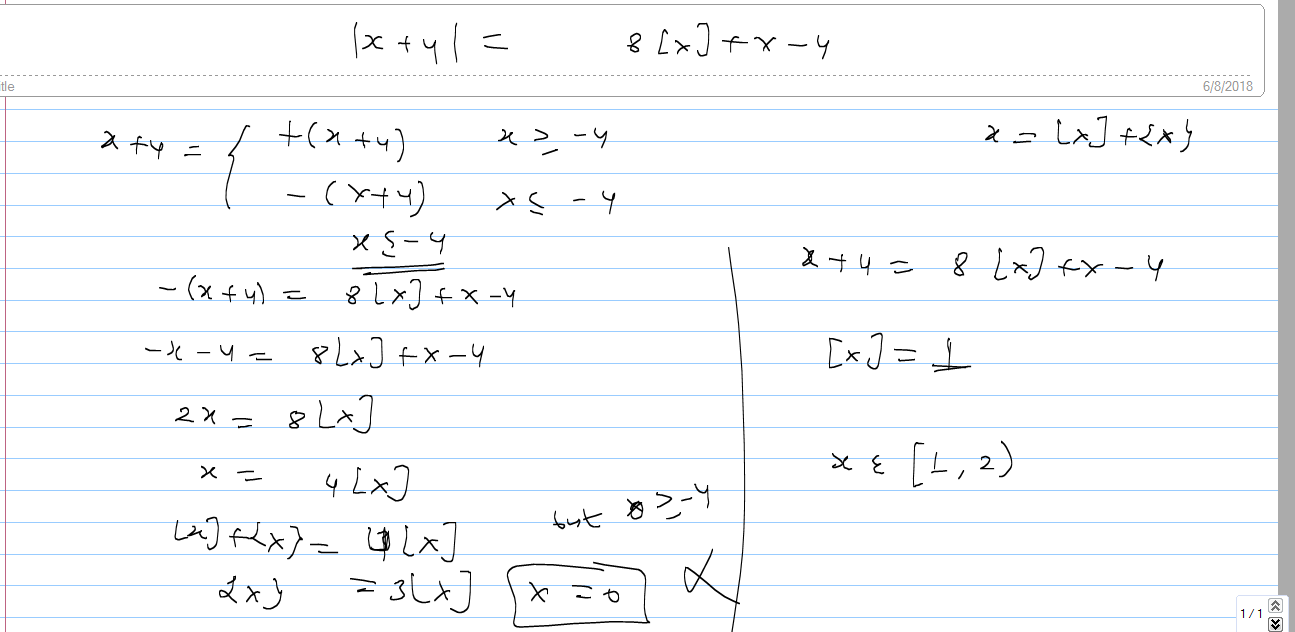 |x + 4| = 8 [x] + x - 4
itle
6/8/2018
x + 4 = { +(x + 4) x ≥ -4
x = [x] + {x}
- (x + 4) x ≤ - 4
x ≤ - 4
-(x + 4) = 8 [x] + x - 4
-x - 4 = 8 [x] + x - 4
2x = 8 [x]
x = 4 [x]
[x] + {x} = 4 [x]
{x} = 3 [x]
x = 0
but 0 ≥ -4
x + 4 = 8 [x] + x - 4
[x] = 1
x ε [1, 2)
1/1